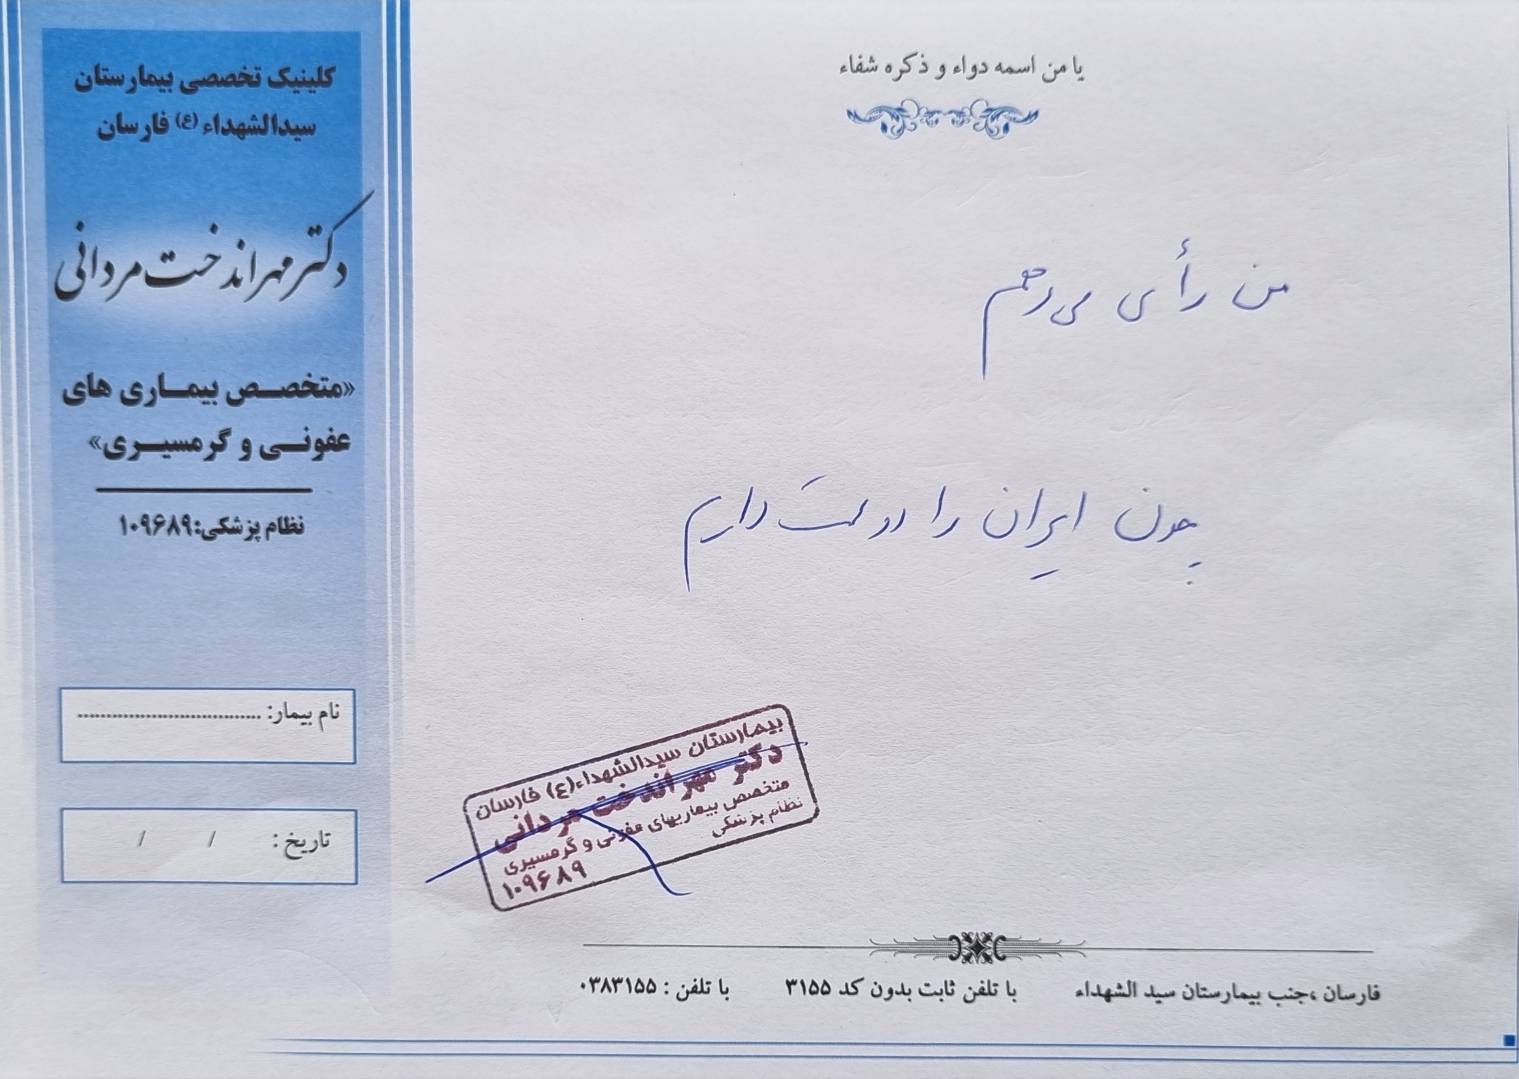 یا من اسمه دواء و ذکره شفاء
کلینیک تخصصی بیمارستان
سیدالشهداء (ع) فارسان
دکتر مهراندخت مردانی
«متخصص بیماری های
عفونی و گرمسیری»
نظام پزشکی:۱۰۹۶۸۹
نام بیمار: ................................
تاریخ : / /
من رأی می‌دهم
چون ایران را دوست داریم
بیمارستان سیدالشهداء(ع) فارسان
دکتر مهراندخت مردانی
متخصص بیماریهای عفونی و گرمسیری
نظام پزشکی
۱۰۹۶۸۹
فارسان ،جنب بیمارستان سید الشهداء با تلفن ثابت بدون کد ۳۱۵۵ با تلفن : ۰۳۸۳۱۵۵